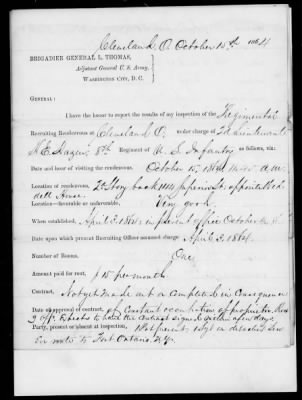 Cleveland, O. October 15th 1864
BRIGADIER GENERAL L. THOMAS,
Adjutant General U. S. Army,
WASHINGTON CITY, D. C.
GENERAL:
I have the honor to report the results of my inspection of the Regimental
Recruiting Rendezvous at Cleveland O. under charge of 2d Lieutenant
8th Regiment of U. S. Infantry as follows, viz:
Date and hour of visiting the rendezvous. October 15, 1864 A.M.
Location of rendezvous. 2d Story back Superior St. opposite
House.
Location—favorable or unfavorable. Very good.
When established. April 3. 1864. in present office October
Date upon which present Recruiting Officer assumed charge. April 3. 1864.
Number of Rooms. One
Amount paid for rest. $ 15 per month
Contract. Not yet made out or completed in Consequence
Date of approval of contract. of Constant occupation of proprietor.
to have the Contract signed in a few days
Party, present or absent at inspection. Not present. 1 Sgt on detached service
En route to Fort Ontario N.Y.